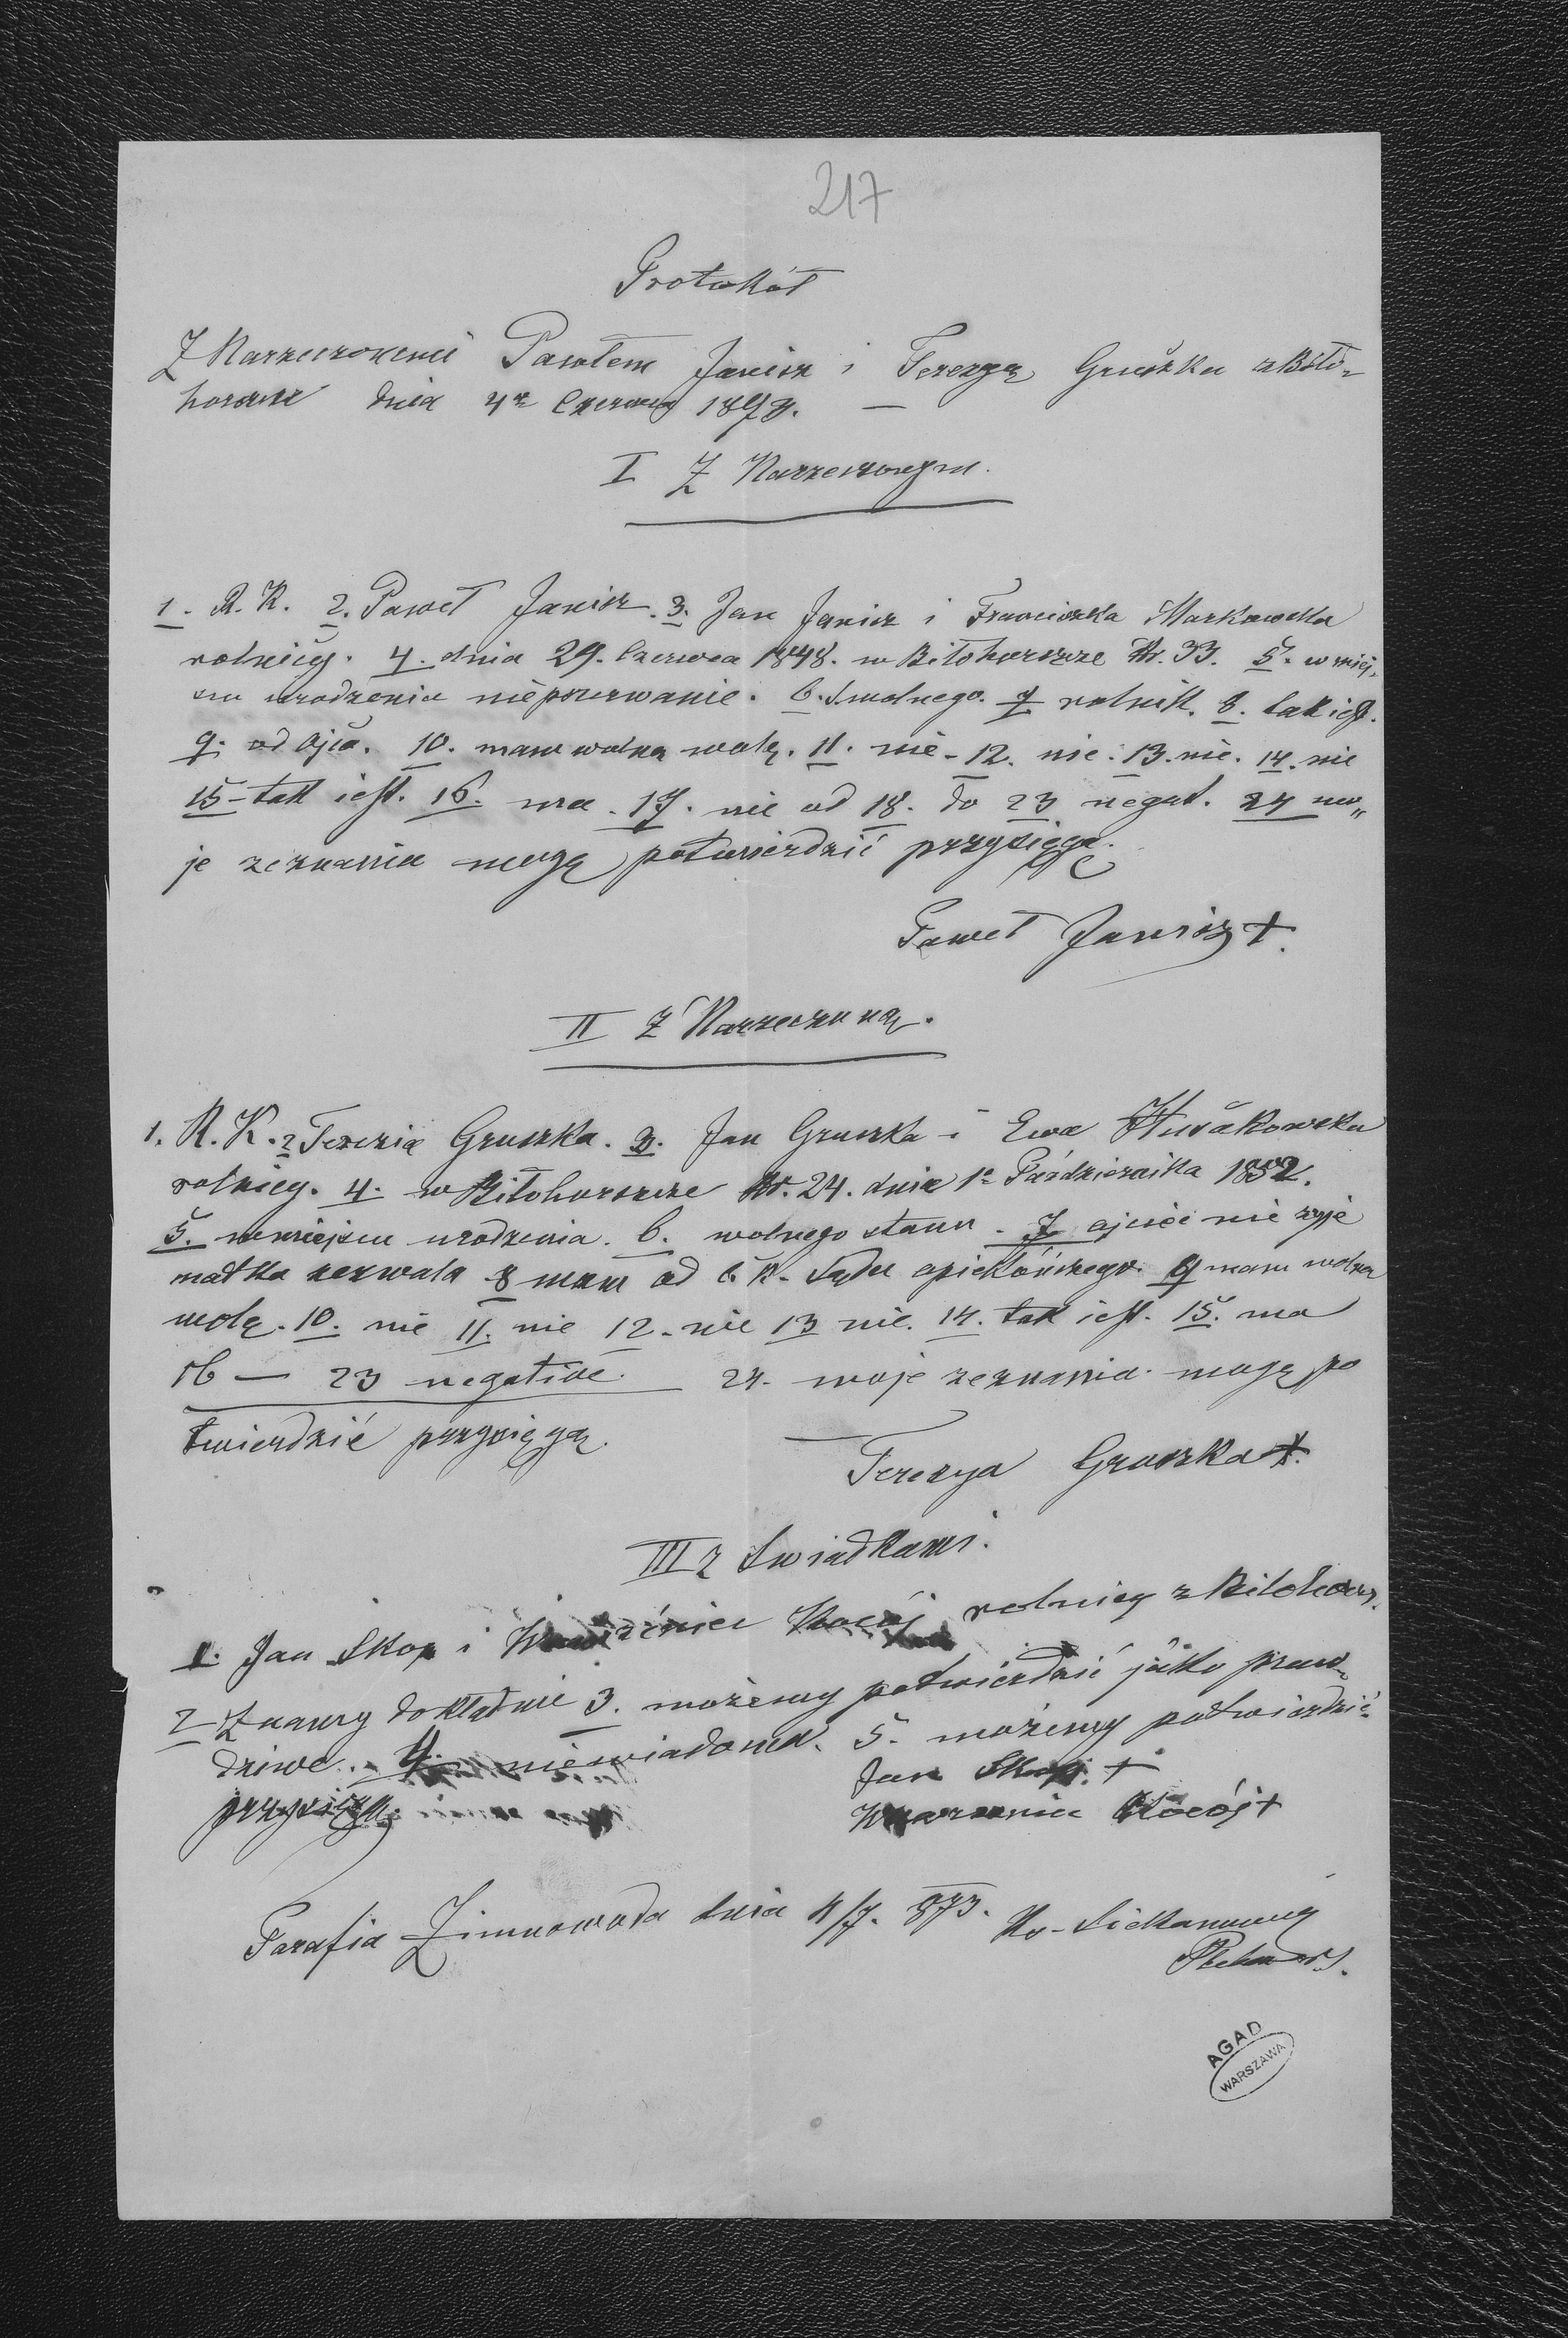 217
Protokół
Z Narzeczonemi Pawłem Janisz i Terezyą Gruszka z Biło-
horszcze dnia 4go Czerwca 1873. —
I Z Narzeczonym.
1. R. K. 2. Paweł Janisz. 3. Jan Janisz i Franciszka Markowska
rolnicy. 4. dnia 29. Czerwca 1848. w Biłohorszcze Nr. 33. 5. w miej-
scu urodzenia nieprzerwanie. 6. S. wolnego. 7 rolnik. 8. tak jest.
9. od Ojca. 10. mam wolną wolę. 11. nie - 12. nie. 13. nie. 14. nie
15 - tak jest. 16. ma. 17. nie od 18. do 23 negat. 24 mo„
je zeznania mogę potwierdzić przysięgą.
Paweł Janisz +.
II Z Narzeczoną.
1. R. K. 2 Terezia Gruszka. 3. Jan Gruszka i Ewa
rolnicy. 4. w Biłohorszcze Nr. 24. dnia 1o Października 1852.
5. w miejscu urodzenia. 6. wolnego stanu. 7 ojciec nie żyje
matka zezwala 8 mam od C. K. Sądu opiekóńczego. 9 mam wolną
wolę. 10. nie 11. nie 12. nie 13 nie. 14. tak jest. 15. ma
16 — 23 negative. 24. moje zeznania mogę po
twierdzić przysięgą. —
Terezya Gruszka +.
III z Swiadkami.
1. Jan Skop i Kocój rolnicy z Biłohorsz.
2 Znamy dokładnie 3. możemy potwierdzić jako praw-
dziwe. 4. niewiadoma. 5. możemy potwierdzić
przysięgą. Jan Skop. +
Kocój +
Parafia Zimnowoda dnia 4/7. 873.
AGAD
WARSZAWA